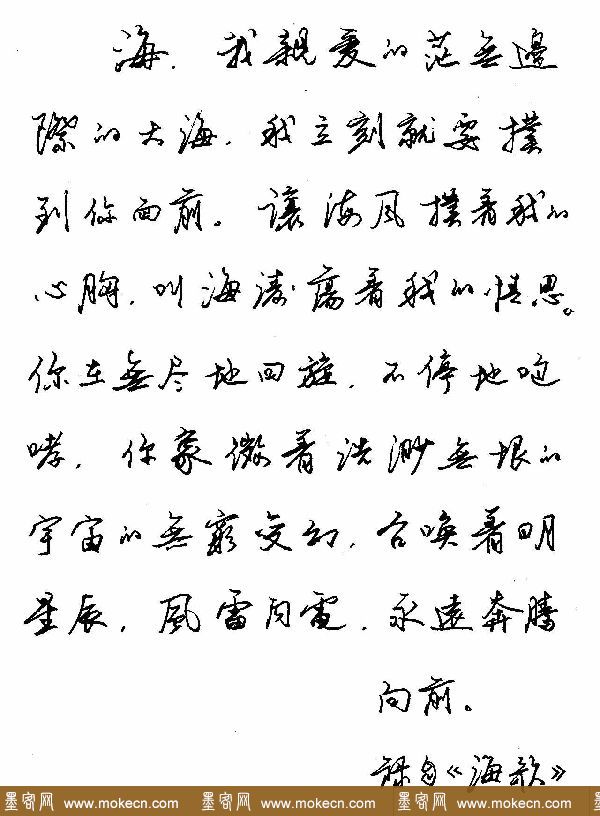 海，我親爱的茫無邊
際的大海，我立刻就要撲
到你面前。讓海风撲着我的
心胸，叫海濤蕩着我的情思。
你在無尽地回旋，不停地咆
哮，你象徵着浩渺無垠的
宇宙的無窮变幻，召唤着明
星辰，風雷闪電，永遠奔腾
向前。
録自《海歌》
墨客网 www.mokecn.com 墨客网 www.mokecn.com 墨客网 www.mokecn.com